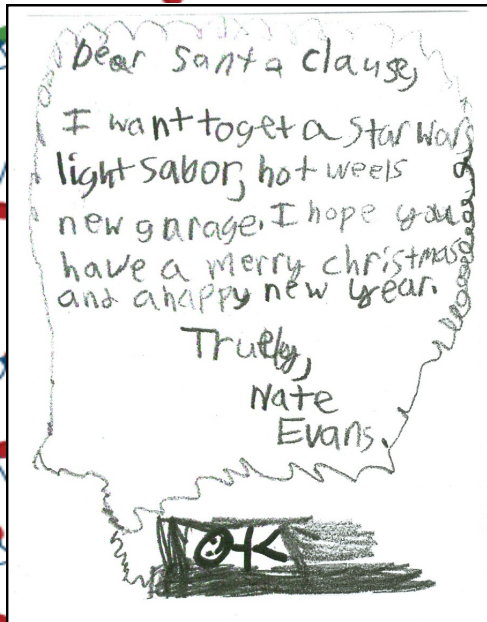 Dear Santa Clause,
I want to get a Star Wars
light sabor, hot weels
new garage. I hope you
have a merry christmas
and a happy new year.
Truely,
Nate
Evans.